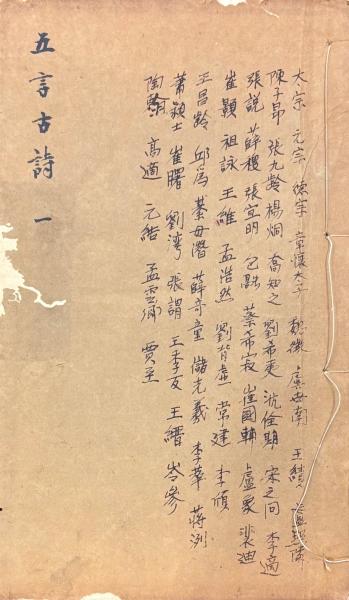 太宗 元宗 德宗 章懷太子 魏徵 虞世南 王績
陳子昂 張九齡 楊炯 喬知之 劉希夷 沈佺期 宋之問 李適
張説 薛稷 張宣明 包融 蔡希寂 崔國輔 盧象 梁迪
崔顥 祖詠 王維 孟浩然 劉眘虛 常建 李頎
王昌齡 邱為 綦毋潛 薛奇童 儲光羲 李華 蔣洌
蕭穎士 崔曙 劉灣 張謂 王季友 王縉 岑參
陶翰 高適 元結 孟雲卿 賈至
五言古詩 一